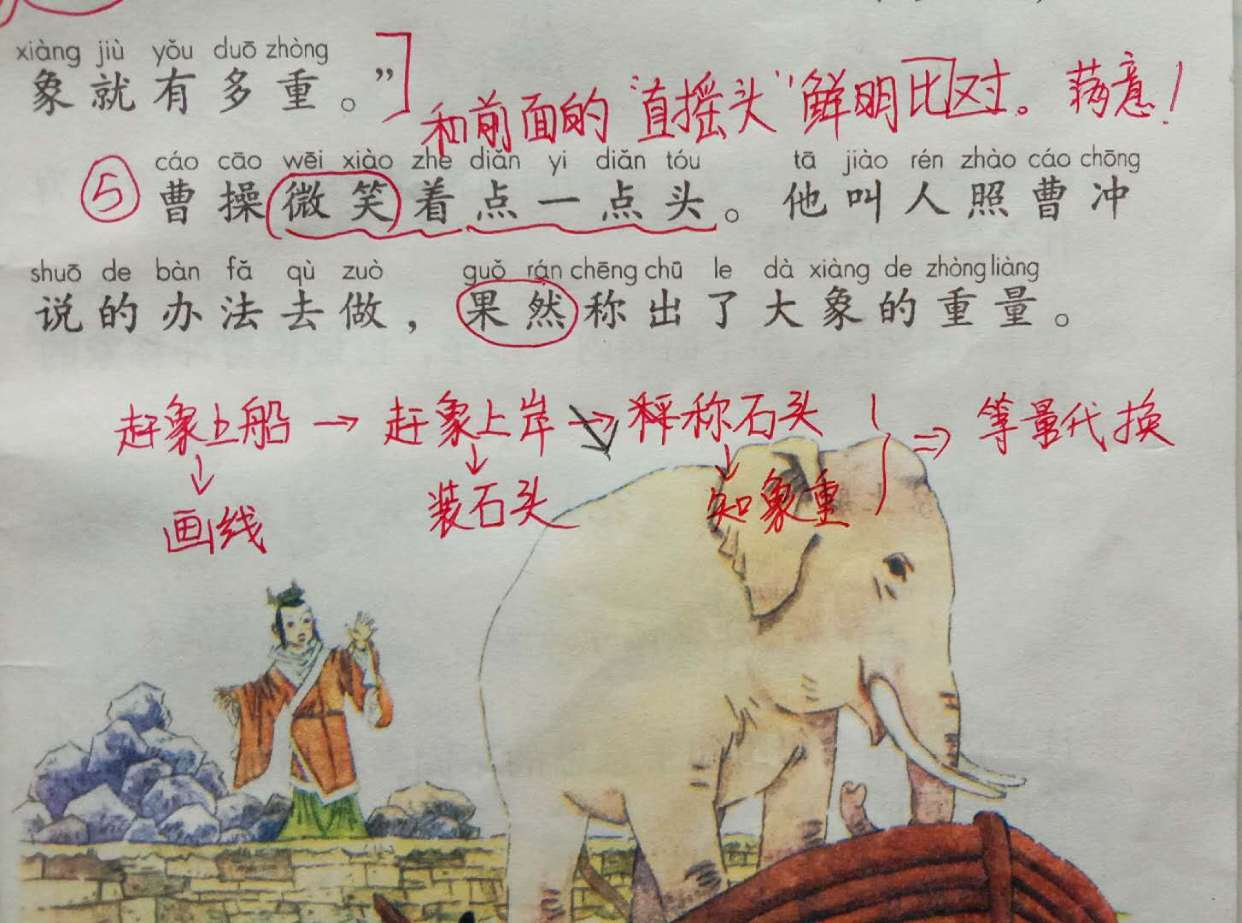 xiàng jiù yǒu duō zhòng
象就有多重。”
和前面的“直摇头”鲜明比对。满意!
cáo cāo wēi xiào zhe diǎn yi diǎn tóu tā jiào rén zhào cáo chōng
⑤ 曹操微笑着点一点头。他叫人照曹冲
shuō de bàn fǎ qù zuò guǒ rán chēng chū le dà xiàng de zhòng liàng
说的办法去做，果然称出了大象的重量。
赶象上船→赶象上岸→再称石头 ⇒ 等量代换
画线 装石头 知象重